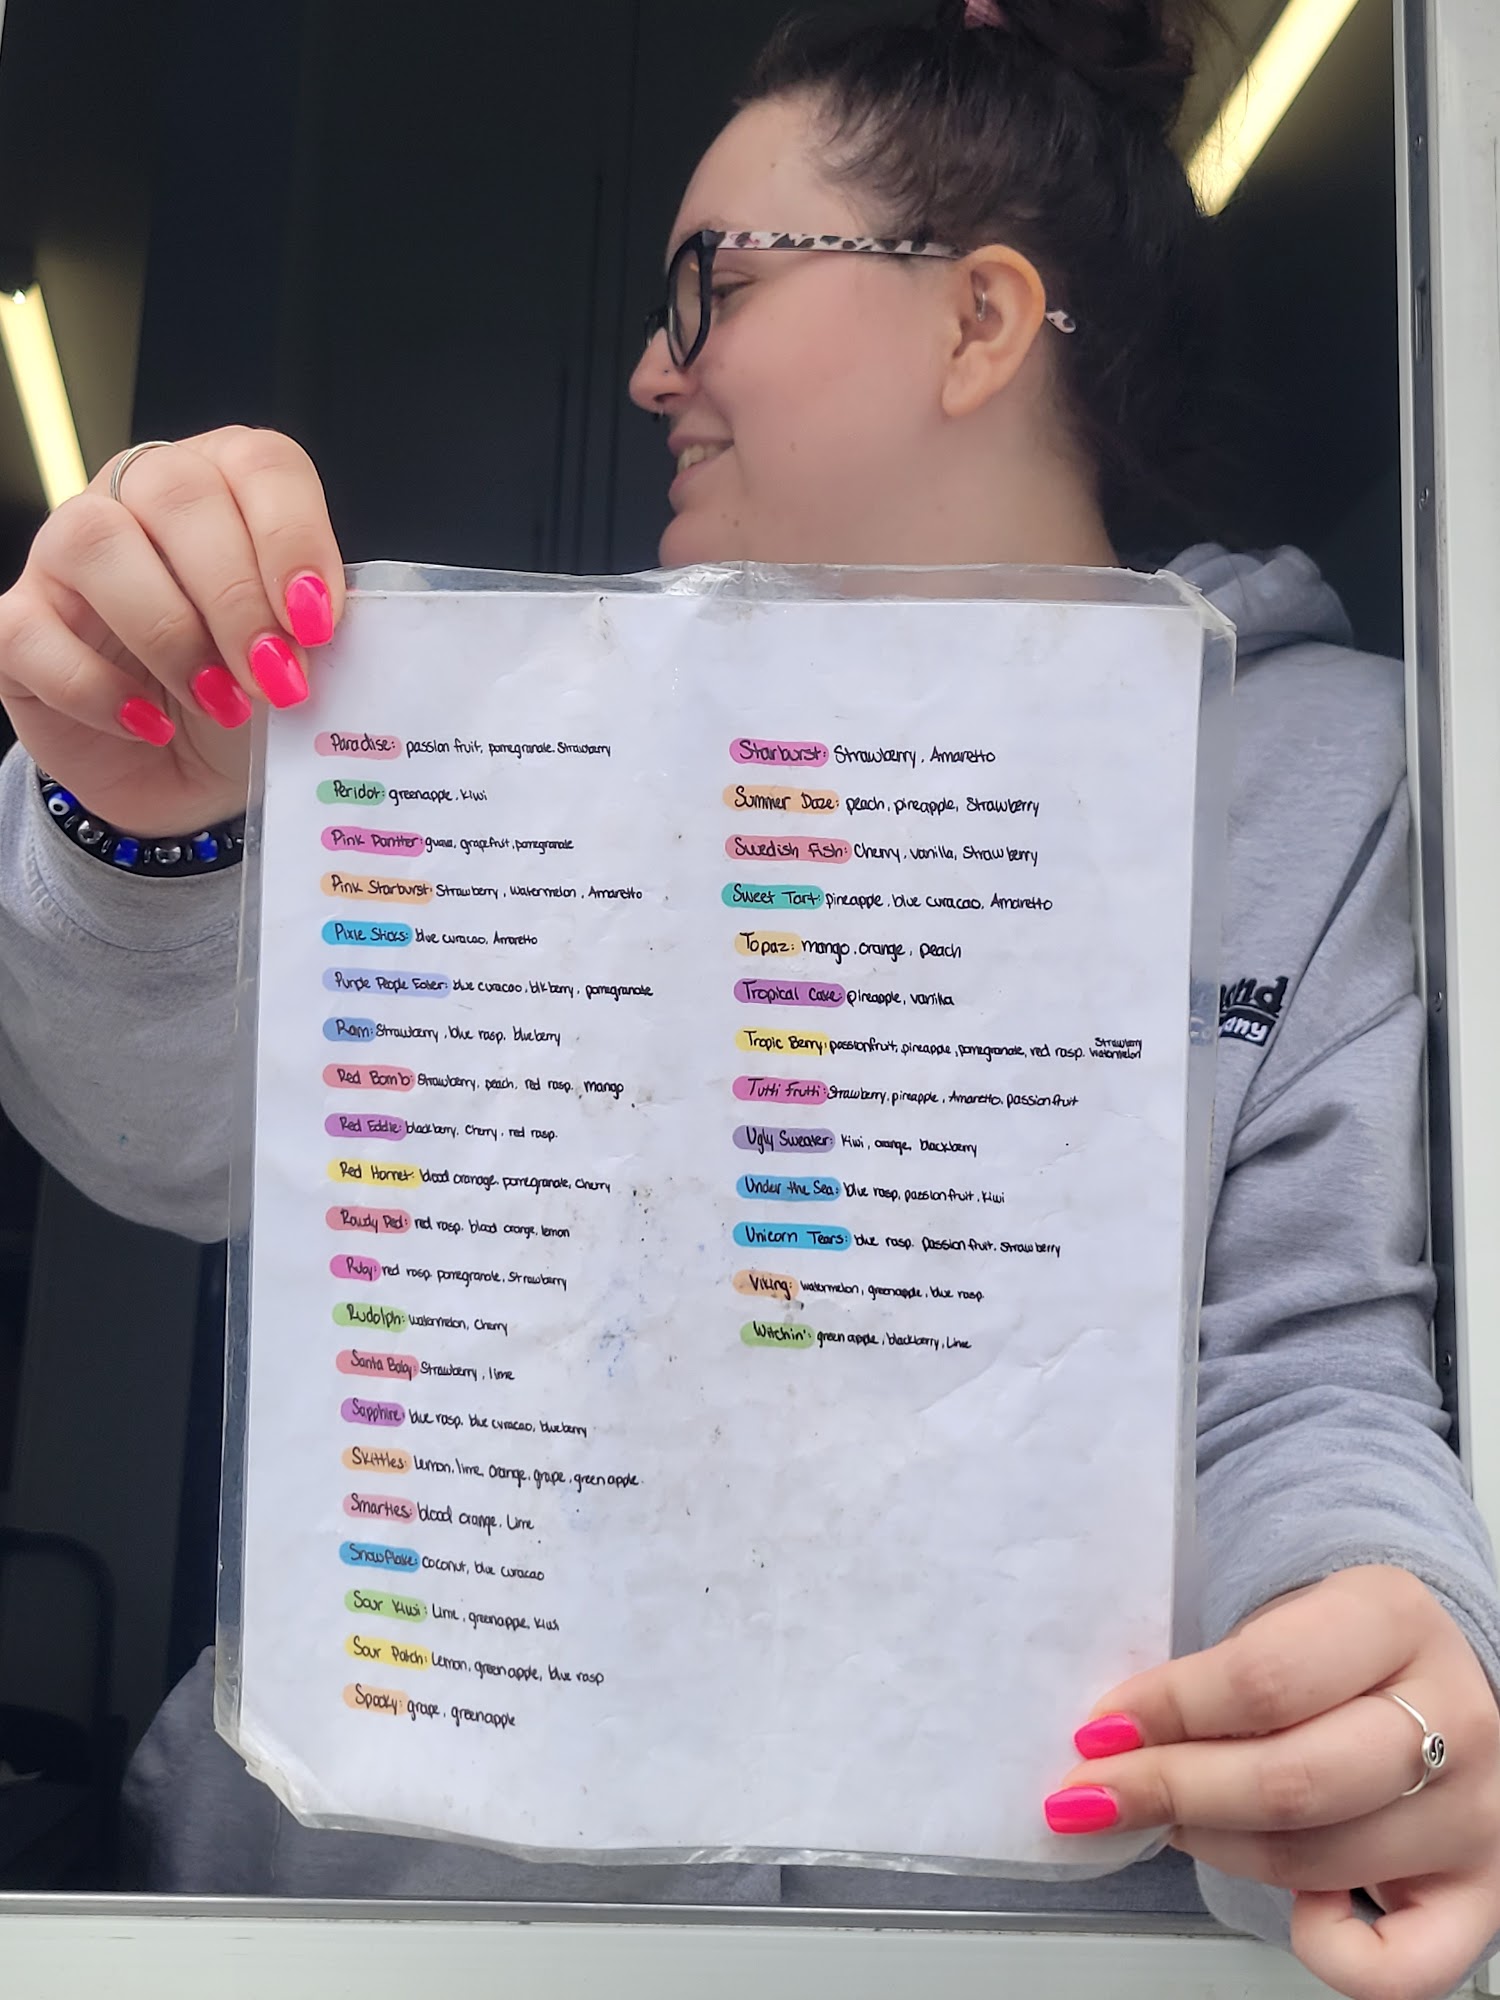 Paradise: passion fruit, pomegranate. Strawberry
Peridot: greenapple, kiwi
Pink Panther: guava, grapefruit, pomegranate
Pink Starburst: Strawberry, Watermelon, Amaretto
Pixie Sticks: blue curacao, Amaretto
Purple People Eater: blue curacao, blkberry, pomegranate
Ram: Strawberry, blue rasp. blueberry
Red Bomb: Strawberry, peach, red rasp. mango
Red Eddie: blackberry, Cherry, red rasp.
Red Hornet: blood orange, pomegranate, Cherry
Rowdy Red: red rasp. blood orange, lemon
Ruby: red rasp. pomegranate, Strawberry
Rudolph: watermelon, Cherry
Santa Baby: Strawberry, lime
Sapphire: blue rasp. blue curacao, blueberry
Skittles: Lemon, lime, orange, grape, green apple.
Smarties: blood orange, Lime
Snowflake: coconut, blue curacao
Sour Kiwi: Lime, greenapple, kiwi
Sour Patch: Lemon, green apple, blue rasp
Spooky: grape, greenapple
Starburst: Strawberry, Amaretto
Summer Daze: peach, pineapple, Strawberry
Swedish Fish: Cherry, vanilla, Strawberry
Sweet Tart: pineapple, blue curacao, Amaretto
Topaz: mango, orange, peach
Tropical Cake: pineapple, vanilla
Tropic Berry: passionfruit, pineapple, pomegranate, red rasp. Strawberry
watermelon
Tutti Frutti: Strawberry, pineapple, Amaretto, passion fruit
Ugly Sweater: Kiwi, orange, blackberry
Under the Sea: blue rasp, passion fruit, Kiwi
Unicorn Tears: blue rasp. Passion fruit. Strawberry
Viking: watermelon, greenapple, blue rasp.
Witchin': green apple, blackberry, Lime